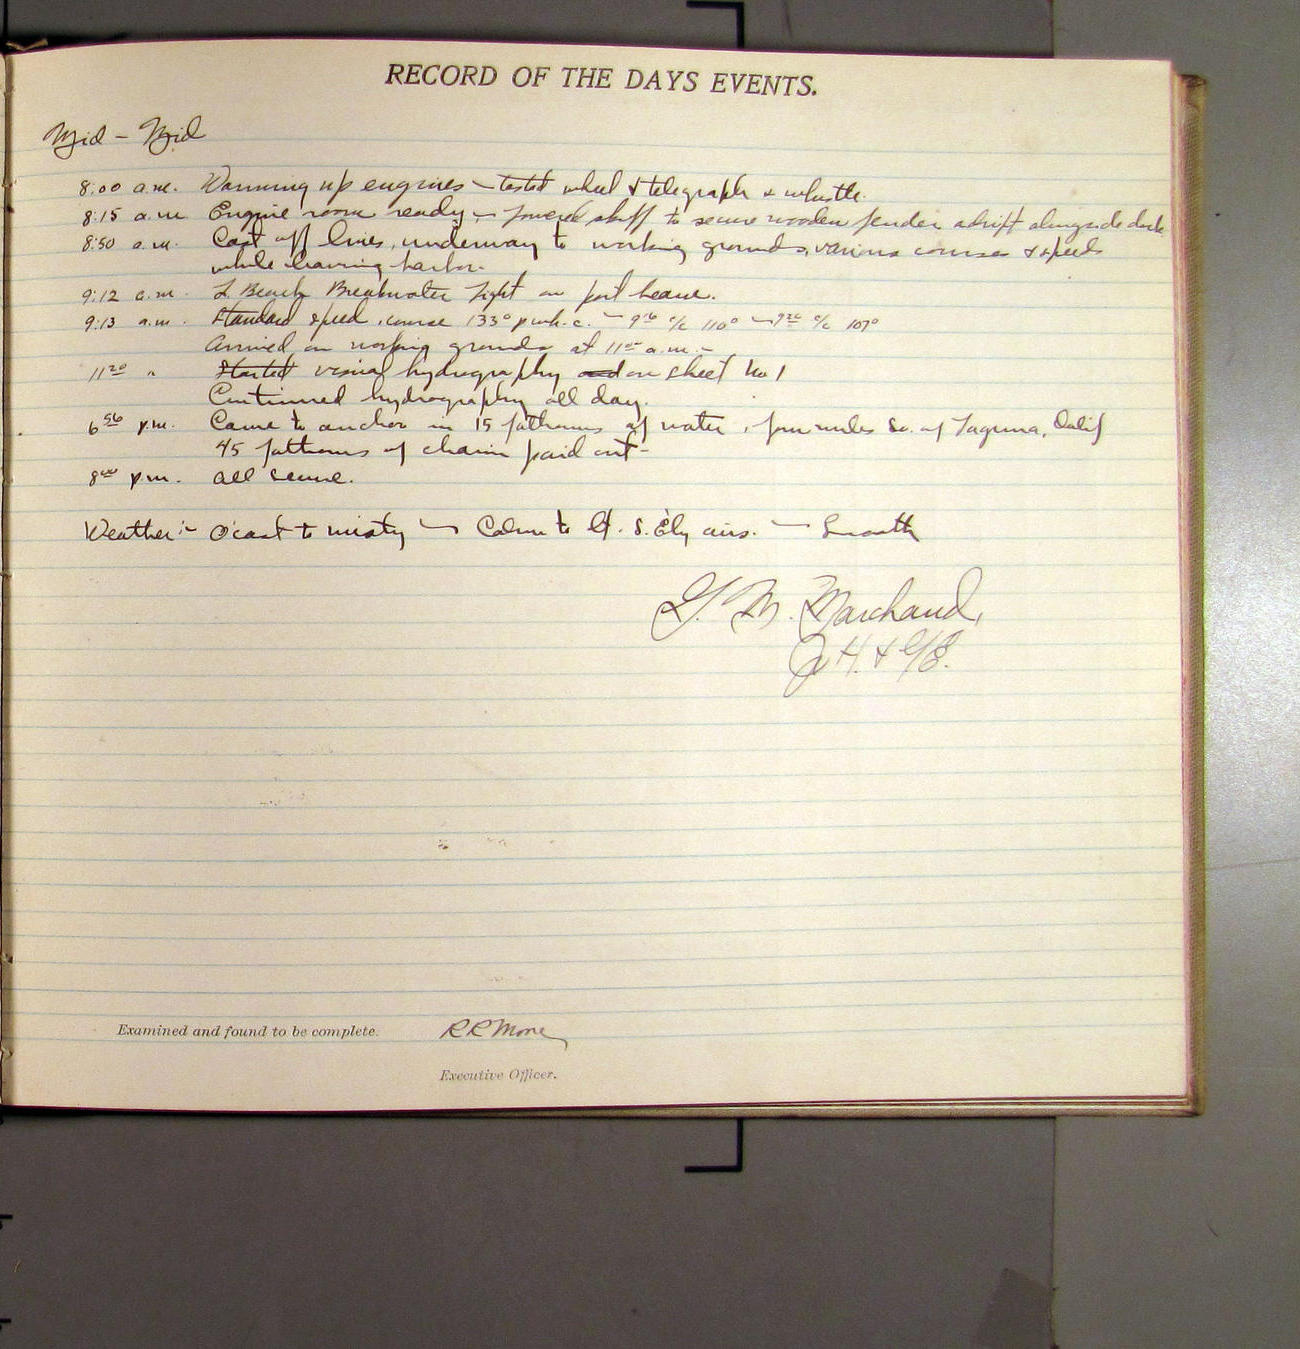 RECORD OF THE DAYS EVENTS.
Mid - Mid
8:00 a.m. Warming up engines - tested wheel & telegraph & whistle.
8:15 a.m. Engine room ready - skiff to secure wooden fender adrift alongside dock
8:50 a.m. Cast off lines, underway to working grounds, various courses & speeds
while leaving harbor.
9:12 a.m. L. Beach Breakwater Light on port beam.
9:13 a.m. Standard speed, course 133° p.wh.c. - 9 16 c/c 110° - 9 20 c/c 107°
Arrived on working grounds at 11 05 a.m. -
11 20 " Started visual hydrography and on sheet No 1
Continued hydrography all day.
6 56 p.m. Came to anchor in 15 fathoms of water, four miles So. of Laguna, Calif
45 fathoms of chain paid out -
8 00 p.m. all secure.
Weather:- O'cast to misty - Calm to lt. S.Ely airs. - Smooth
Marchand,
Jr H. & G.E.
Examined and found to be complete. R R Moore
Executive Officer.